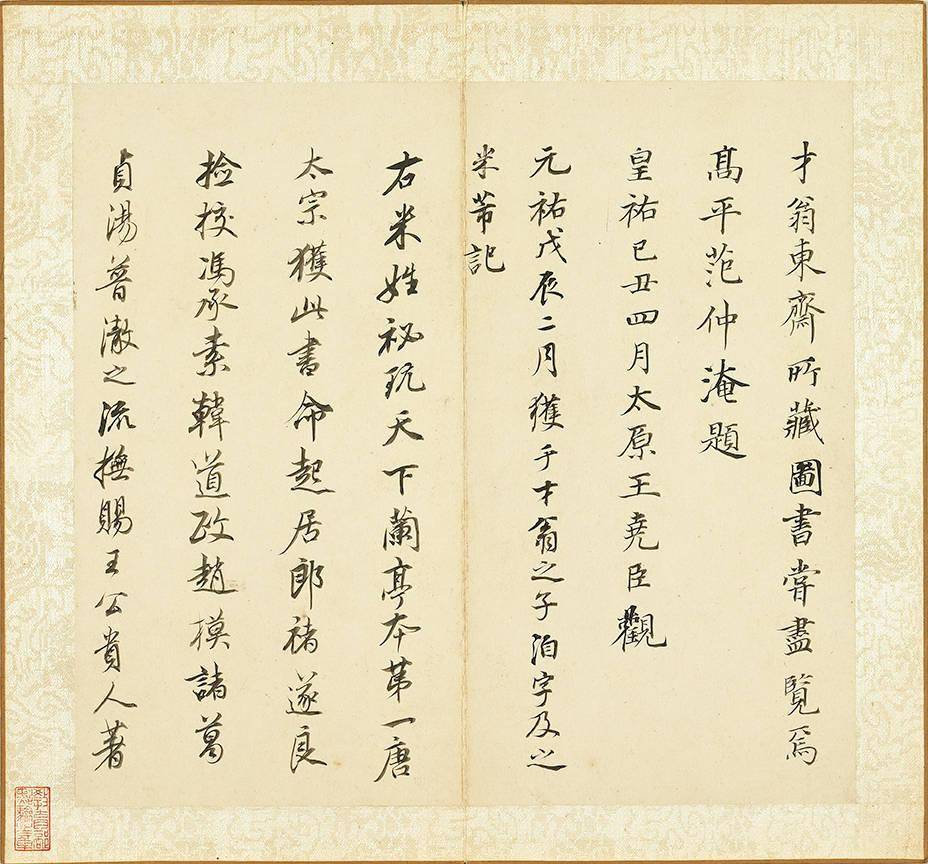 才翁東齋所藏圖書嘗盡覽焉
髙平范仲淹題
皇祐己丑四月太原王堯臣觀
元祐戊辰二月獲于才翁之子洎字及之
米芾記
右米姓祕玩天下蘭亭本第一唐
太宗獲此書命起居郎褚遂良
捡挍馮承素韓道政趙模諸葛
貞湯普澈之流摸賜王公貴人著